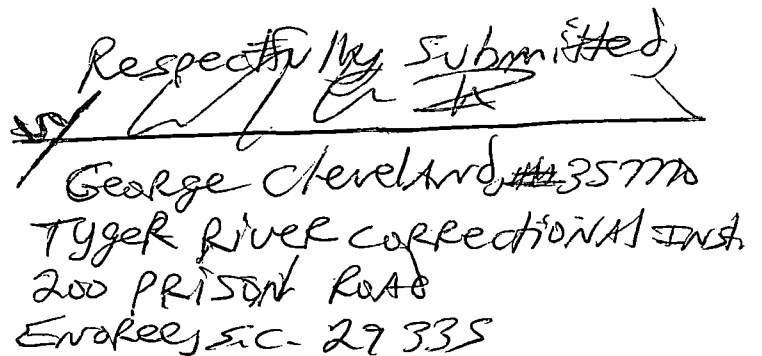 Respectfully submitted,
George Cleveland, III #35770
Tyger River Correctional Inst.
200 Prison Road
Enoree, S.C. 29335